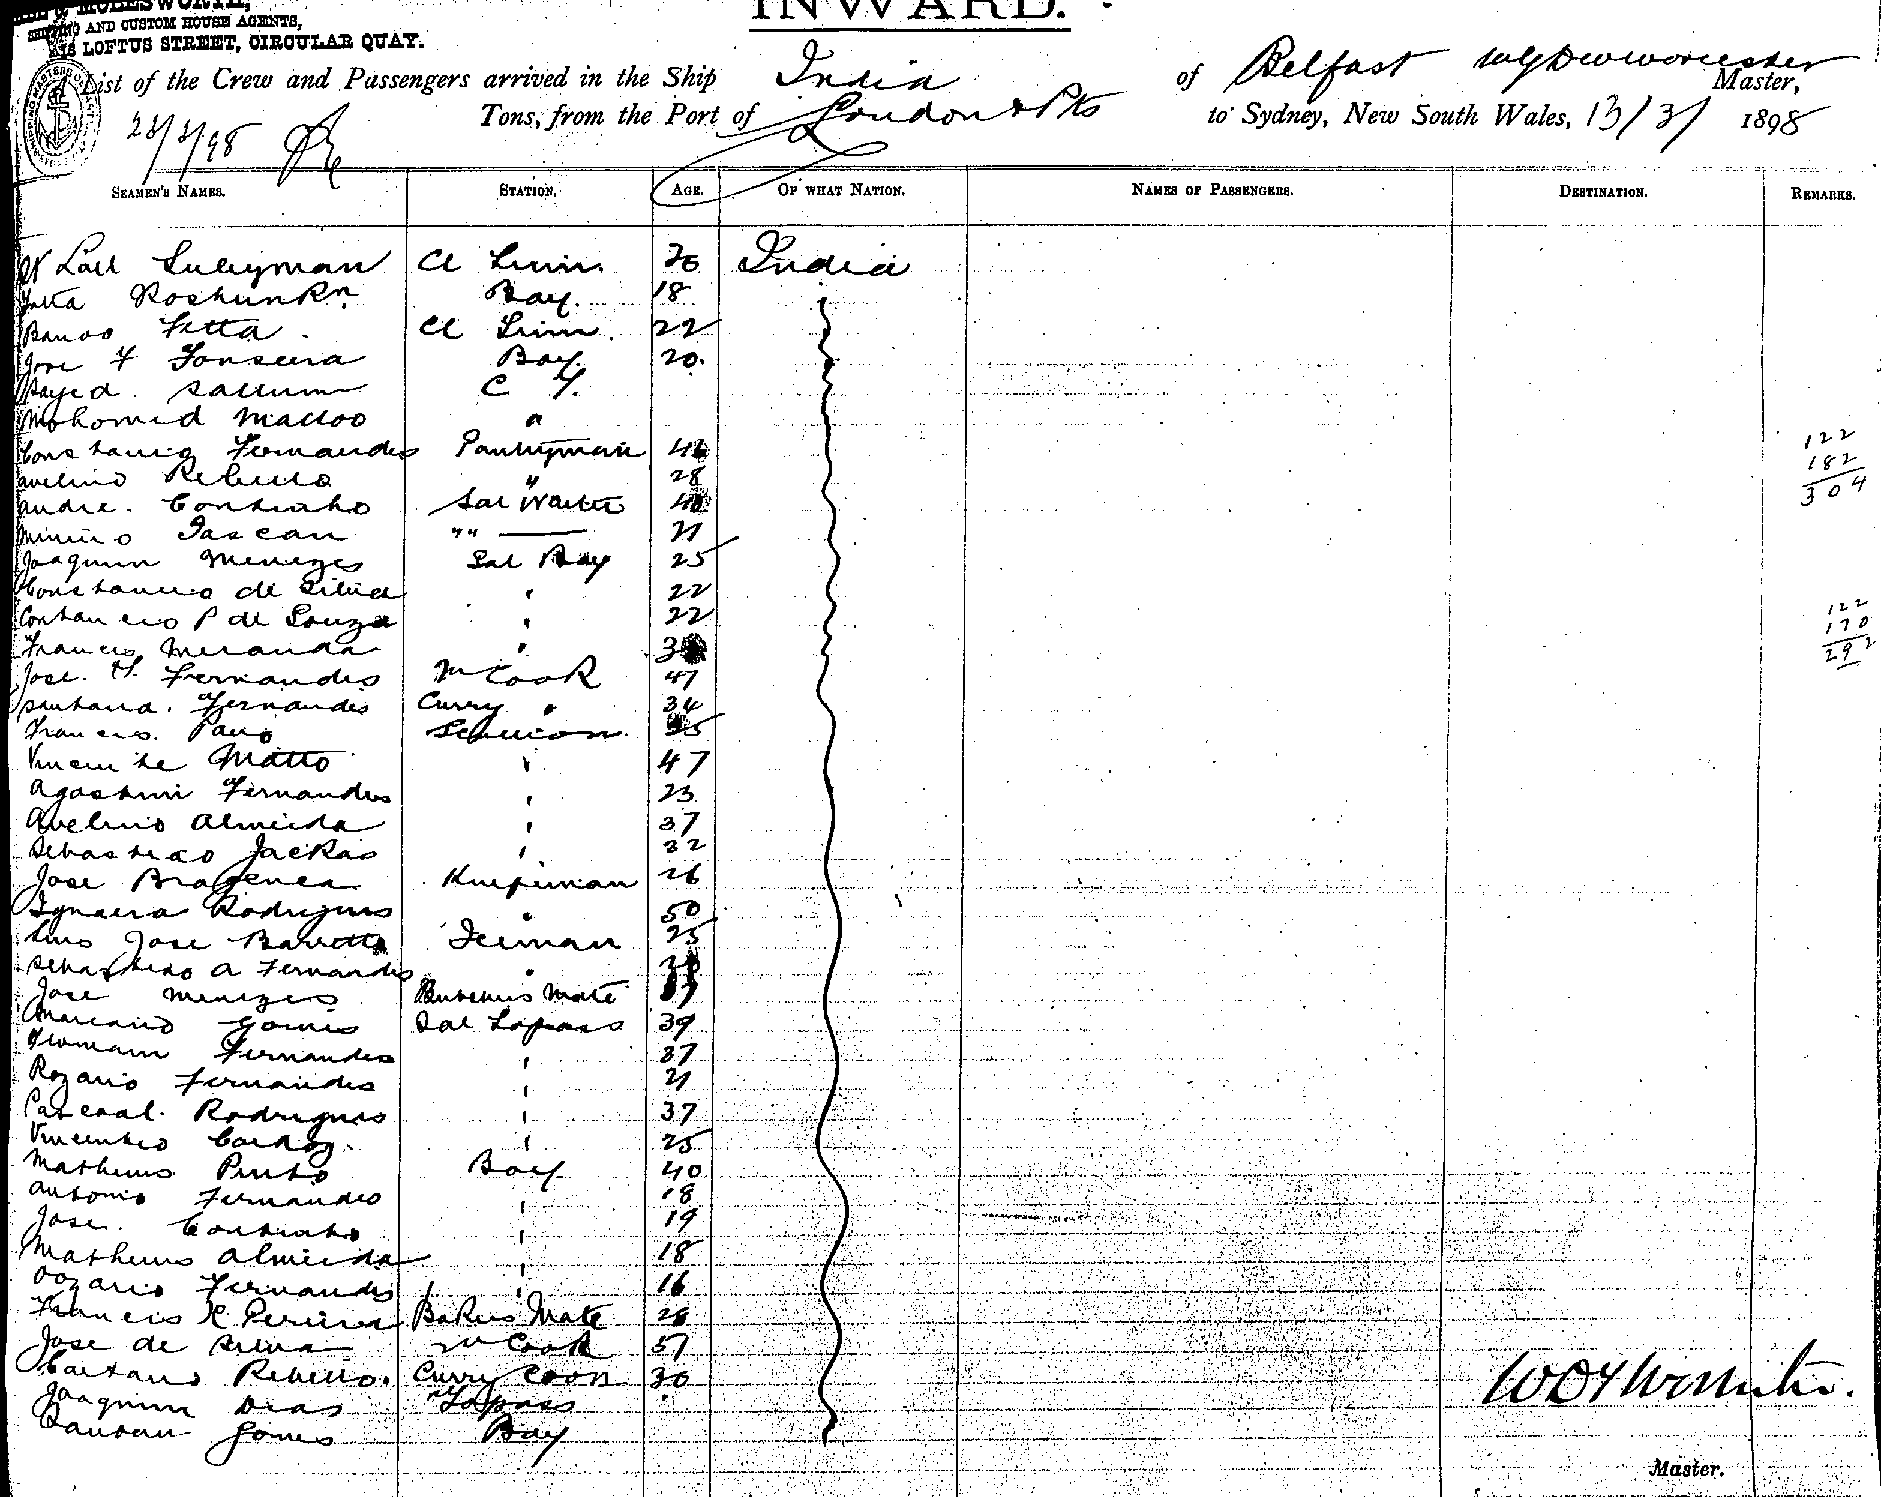 MOLESWORTH,
SHIPPING AND CUSTOM HOUSE AGENTS,
LOFTUS STREET, CIRCULAR QUAY.
INWARD.
List of the Crew and Passengers arrived in the Ship India of Belfast Master,
Tons, from the Port of London & Pts to Sydney, New South Wales, 13/3/ 1898
23/3/98
SEAMEN'S NAMES. STATION. AGE. OF WHAT NATION. NAMES OF PASSENGERS. DESTINATION. REMARKS.
Lall Suleyman Cl Trim. India
Roshunkn Boy. 18
Banoo Fetta Cl Trim. 22
Jose F Fonseca Boy. 20.
Sayed Sallum C F.
Mohomed Malloo "
Constancio Fernandes Pantryman
Avelino Rebello " 28
Andre. Continho Sal Waiter
Minino " " 21
Joaquim Menezes Sal Boy 25
Constancio de Silva " 22
Contancio P de Souza " 22
Francis Miranda "
Jose. F. Fernandis M Cook 47
Santana. Fernandis Curry " 34
Francis. Scullion
Vincente Matto " 47
Agostini Fernandes " 23
Avelino Almeida " 37
Sebastiao Jackas " 32
Jose Bragenca Knifeman 26
Ignacio Rodrigues " 50
Luis Jose Barretto Iceman 25
Sebastiao A Fernandis "
Jose Menezes Butchers Mate 37
Mareano Gomes Sal Topass 39
Fernandes " 37
Rozario Fernandes " 21
Pascoal. Rodrigues " 37
Vincentio " 25
Matheus Pinto Boy 40
Antonio Fernandes " 18
Jose. Continho " 19
Matheus Almeida " 18
Rozario Fernandis " 16
Francis X Pereira Bakers Mate 28
Jose de Silva M Cook 51
Caetano Rebello. Curry Cook 30
Joaquim Dias "Topass
Gomes Boy
122
182
304
122
170
292
Master.